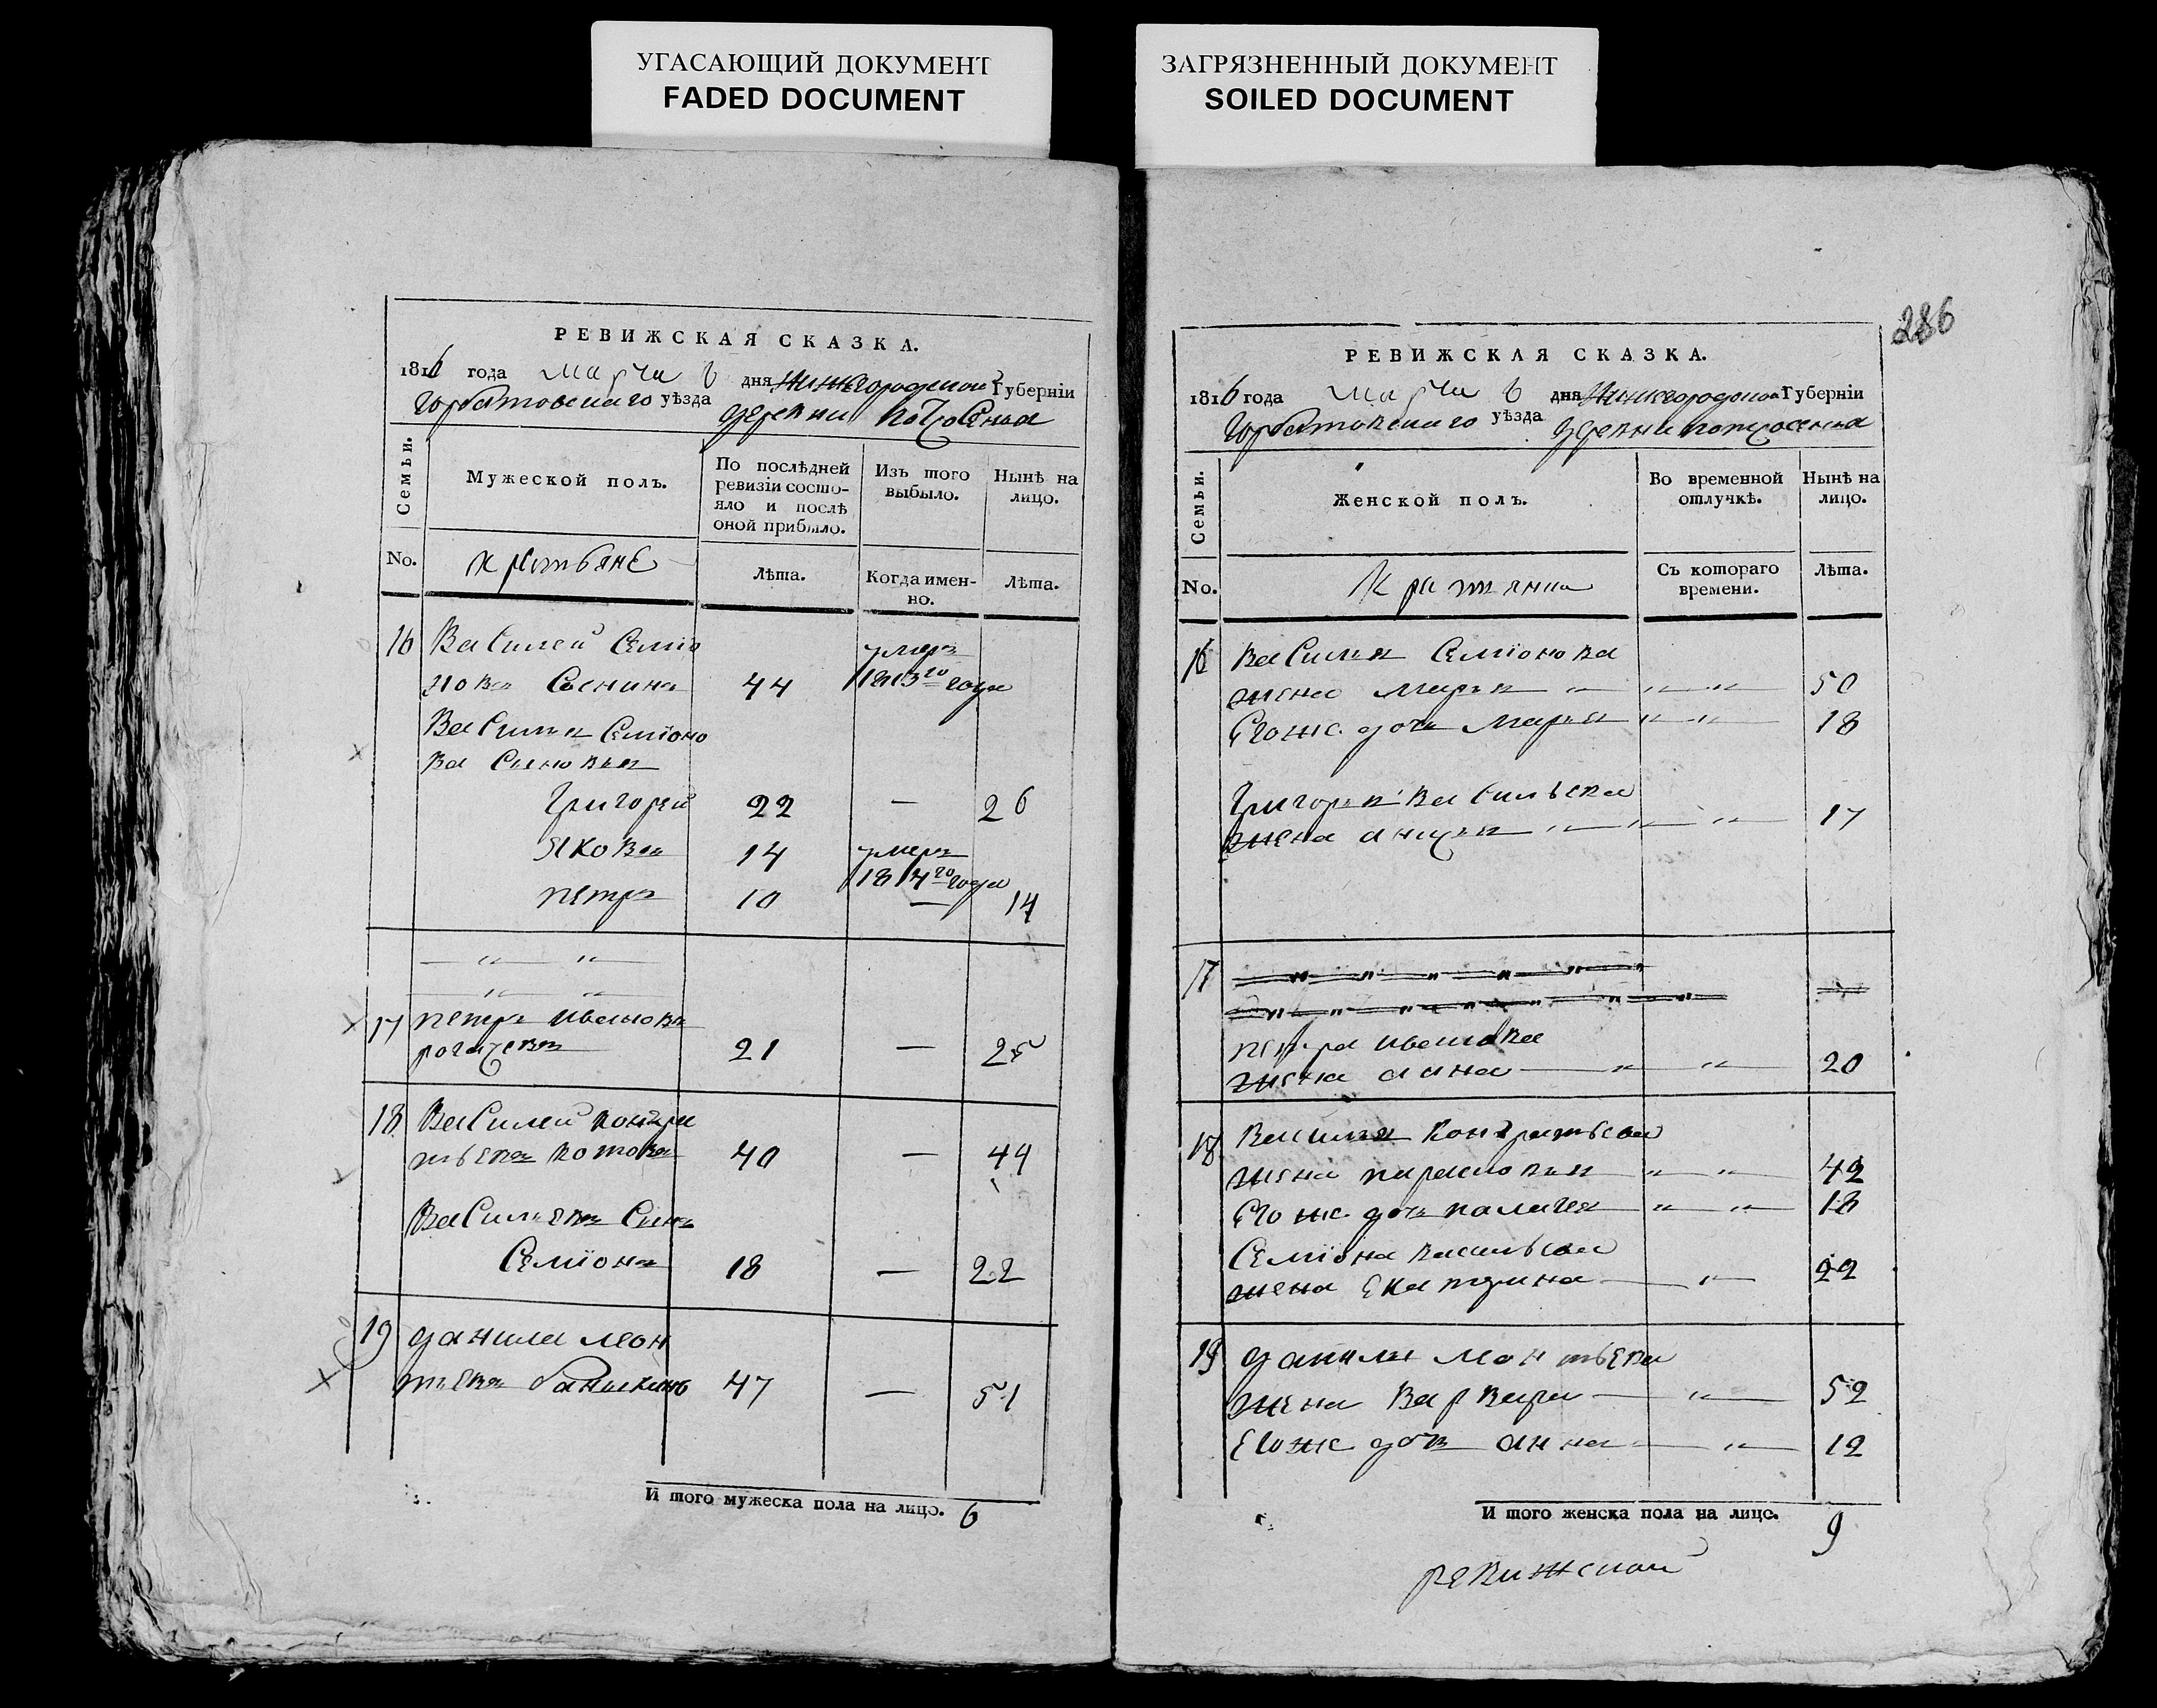 УГАСАЮЩИЙ ДОКУМЕНТ
FADED DOCUMENT
ЗАГРЯЗНЕННЫЙ ДОКУМЕНТ
SOILED DOCUMENT
РЕВИЖСКАЯ СКАЗКА.
1816 года марта дня Нижегородской Губерніи
Горбатовскаго уѣзда деревни
Семьи.
Мужеской полъ.
По послѣдней ревизіи состояло и послѣ оной прибыло.
Изъ того выбыло.
Нынѣ на лицо.
No.
крѣстьянѣ
Лѣта.
Когда именно.
Лѣта.
16 Василей Семіо умеръ
новъ Соснинъ 44 1813го года
Василья Семіоно
ва сыновья
Григорей 22 — 26
Яковъ 14 умеръ 1814го года
петръ 10 — 14
— " — " —
— " — " —
17 петръ ивановъ
рогачевъ 21 — 25
18 Василей кондра
тьевъ котовъ 40 — 44
Васильевъ сынъ
Семіонъ 18 — 22
19 данила леон
тьевъ 47 — 51
И того мужеска пола на лицо. 6
286
РЕВИЖСКАЯ СКАЗКА.
1816 года марта дня Нижегородской Губерніи
Горбатовскаго уѣзда деревни
Семьи.
Женской полъ.
Во временной отлучкѣ.
Нынѣ на лицо.
No.
Съ котораго времени.
Лѣта.
16 Василья Семіонова
жена марья " " " 50
Егоже дочь марья " " 18
Григорья васильева
жена " " " 17
17
петра иванова
жена анна — " " 20
18 Василья кондратьева
жена парасковья " " 42
Егоже дочь палагея " " 18
Семіона васильева
жена екатерина — " — 22
19 данилы леонтьева
жена варвара — " — 52
Егоже дочь анна — " — 12
И того женска пола на лицо. 9
ревижской